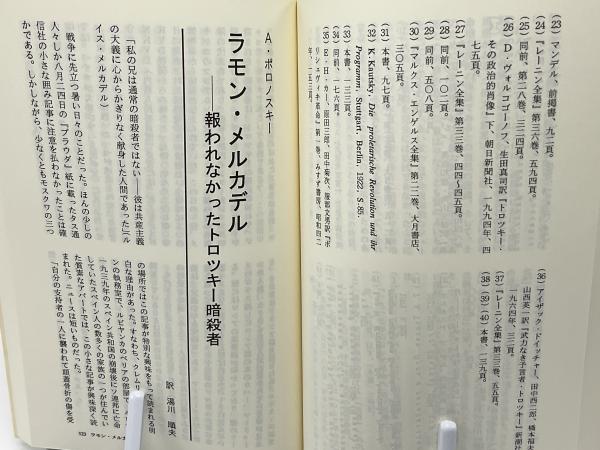 (23) マンデル、前掲書、九二頁。
(24) 『レーニン全集』第三六巻、五九四頁。
(25) 同前、第二八巻、三二四頁。
(26) D・ヴォルコゴーノフ、生田真司訳『トロツキー・
その政治的肖像』下、朝日新聞社、一九九四年、
七五頁。
(27) 『レーニン全集』第三三巻、四四〜四五頁。
(28) 同前、一〇二頁。
(29) 同前、五〇八頁。
(30) 『マルクス・エンゲルス全集』第二二巻、大月書店、
三〇五頁。
(31) 本書、九七頁。
(32) K. Kautsky, Die proletarische Revolution und ihr
Programm, Stuttgart, Berlin, 1922, S. 85.
(33) 本書、一三三頁。
(34) 同前、一七六頁。
(35) E・H・カー、原田三郎、田中菊次、服部文男訳『ボ
リシェヴィキ革命』第一巻、みすず書房、昭和四二
年、一三三頁。
(36) アイザック・ドイッチャー、田中西二郎、橋本福夫、
山西英一訳『武力なき予言者・トロツキー』新潮社
一九六四年、三二頁。
(37) 『レーニン全集』第三三巻、五五頁。
(38)(39)(40) 本書、一三九頁。
A・ポロノスキー
ラモン・メルカデル
――報われなかったトロツキー暗殺者
訳 湯川 順夫
「私の兄は通常の暗殺者ではない――彼は共産主義
の大義に心からかぎりなく献身した人間であった」(ル
イス・メルカデル)
戦争に先立つ暑い日々のことだった。ほんの少しの
人々しか八月二四日の『プラウダ』紙に載ったタス通
信社の小さな囲み記事に注意を払わなかったことは確
かである。しかしながら、少なくともモスクワの三つ
の場所ではこの記事が特別な興味をもって読まれる明
白な理由があった。すなわち、クレムリ
ンの執務室で、ルビヤンカのベリアの部屋で、
一九三九年のスペイン共和国の崩壊後にソ連邦に亡命
していたスペイン人の数多くの家族の一つが住んでい
た質素なアパートでは、この小さな記事が興味深く読
まれた。ニュースは短いものだった。
「自分の支持者の一人に襲われて頭蓋骨折の傷を受
123 ラモン・メルカ